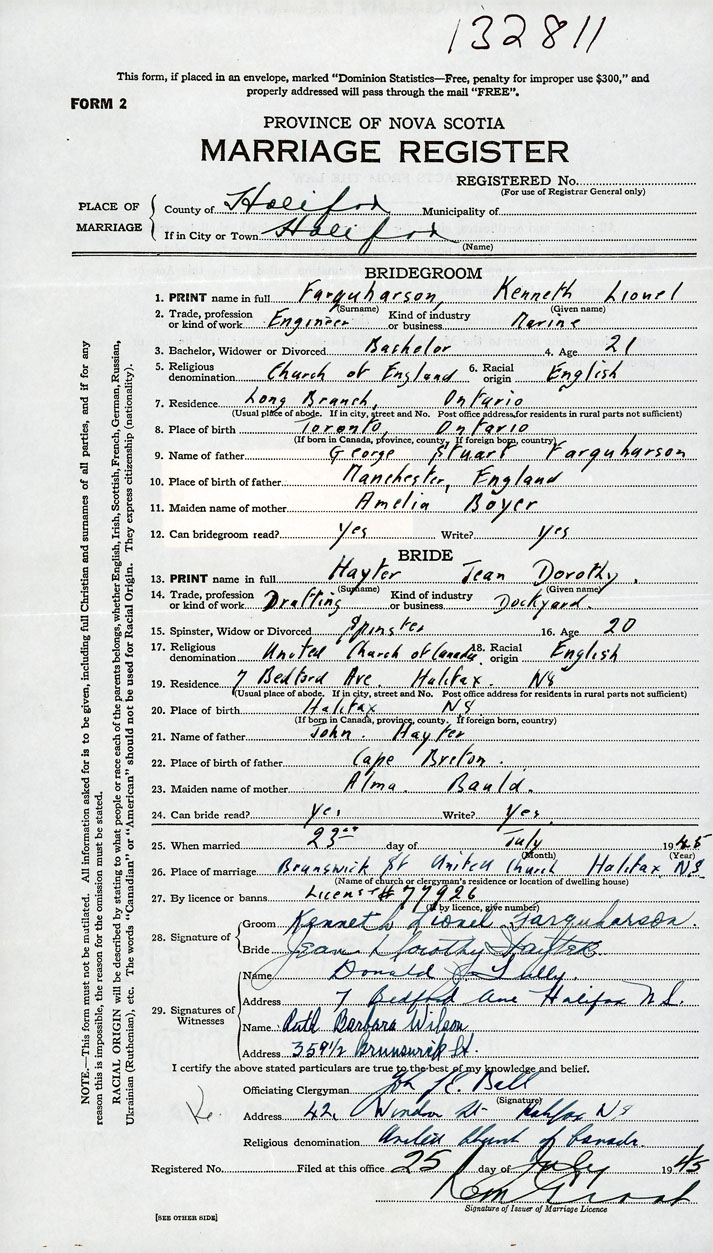 132811
This form, if placed in an envelope, marked "Dominion Statistics—Free, penalty for improper use $300," and
properly addressed will pass through the mail "FREE".
FORM 2
PROVINCE OF NOVA SCOTIA
MARRIAGE REGISTER
REGISTERED No.
(For use of Registrar General only)
PLACE OF MARRIAGE
County of Halifax Municipality of
If in City or Town Halifax
(Name)
BRIDEGROOM
1. PRINT name in full Farquharson, Kenneth Lionel
(Surname) (Given name)
2. Trade, profession or kind of work Engineer Kind of industry or business Marine
3. Bachelor, Widower or Divorced Bachelor 4. Age 21
5. Religious denomination Church of England 6. Racial origin English
7. Residence Long Branch, Ontario
(Usual place of abode. If in city, street and No. Post office address for residents in rural parts not sufficient)
8. Place of birth Toronto, Ontario
(If born in Canada, province, county. If foreign born, country)
9. Name of father George Stuart Farquharson
10. Place of birth of father Manchester, England
11. Maiden name of mother Amelia Boyer
12. Can bridegroom read? Yes Write? Yes
BRIDE
13. PRINT name in full Hayter Jean Dorothy.
(Surname) (Given name)
14. Trade, profession or kind of work Drafting Kind of industry or business Dockyard.
15. Spinster, Widow or Divorced Spinster 16. Age 20
17. Religious denomination United Church of Canada. 18. Racial origin English
19. Residence 7 Bedford Ave. Halifax. NS
(Usual place of abode. If in city, street and No. Post office address for residents in rural parts not sufficient)
20. Place of birth Halifax NS.
(If born in Canada, province, county. If foreign born, country)
21. Name of father John. Hayter
22. Place of birth of father Cape Breton.
23. Maiden name of mother Alma. Bauld.
24. Can bride read? Yes Write? Yes.
25. When married 23rd day of July 1945
(Month) (Year)
26. Place of marriage Brunswick St United Church Halifax N.S.
(Name of church or clergyman's residence or location of dwelling house)
27. By licence or banns License # 77926
(If by licence, give number)
28. Signature of
Groom Kenneth Lionel Farquharson.
Bride Jean Dorothy Hayter
29. Signatures of Witnesses
Name Donald Lully.
Address 7 Bedford Ave Halifax N.S.
Name Ruth Barbara Wilson
Address 359½ Brunswick St.
I certify the above stated particulars are true to the best of my knowledge and belief.
Officiating Clergyman Ball
(Signature)
Address 42 Windsor St- Halifax NS
Religious denomination United Church of Canada.
Registered No. Filed at this office 25 day of July 1945
Signature of Issuer of Marriage Licence
[SEE OTHER SIDE]
NOTE.—This form must not be mutilated. All information asked for is to be given, including full Christian and surnames of all parties, and if for any
reason this is impossible, the reason for the omission must be stated.
RACIAL ORIGIN will be described by stating to what people or race each of the parents belongs, whether English, Irish, Scottish, French, German, Russian,
Ukrainian (Ruthenian), etc. The words "Canadian" or "American" should not be used for Racial Origin. They express citizenship (nationality).